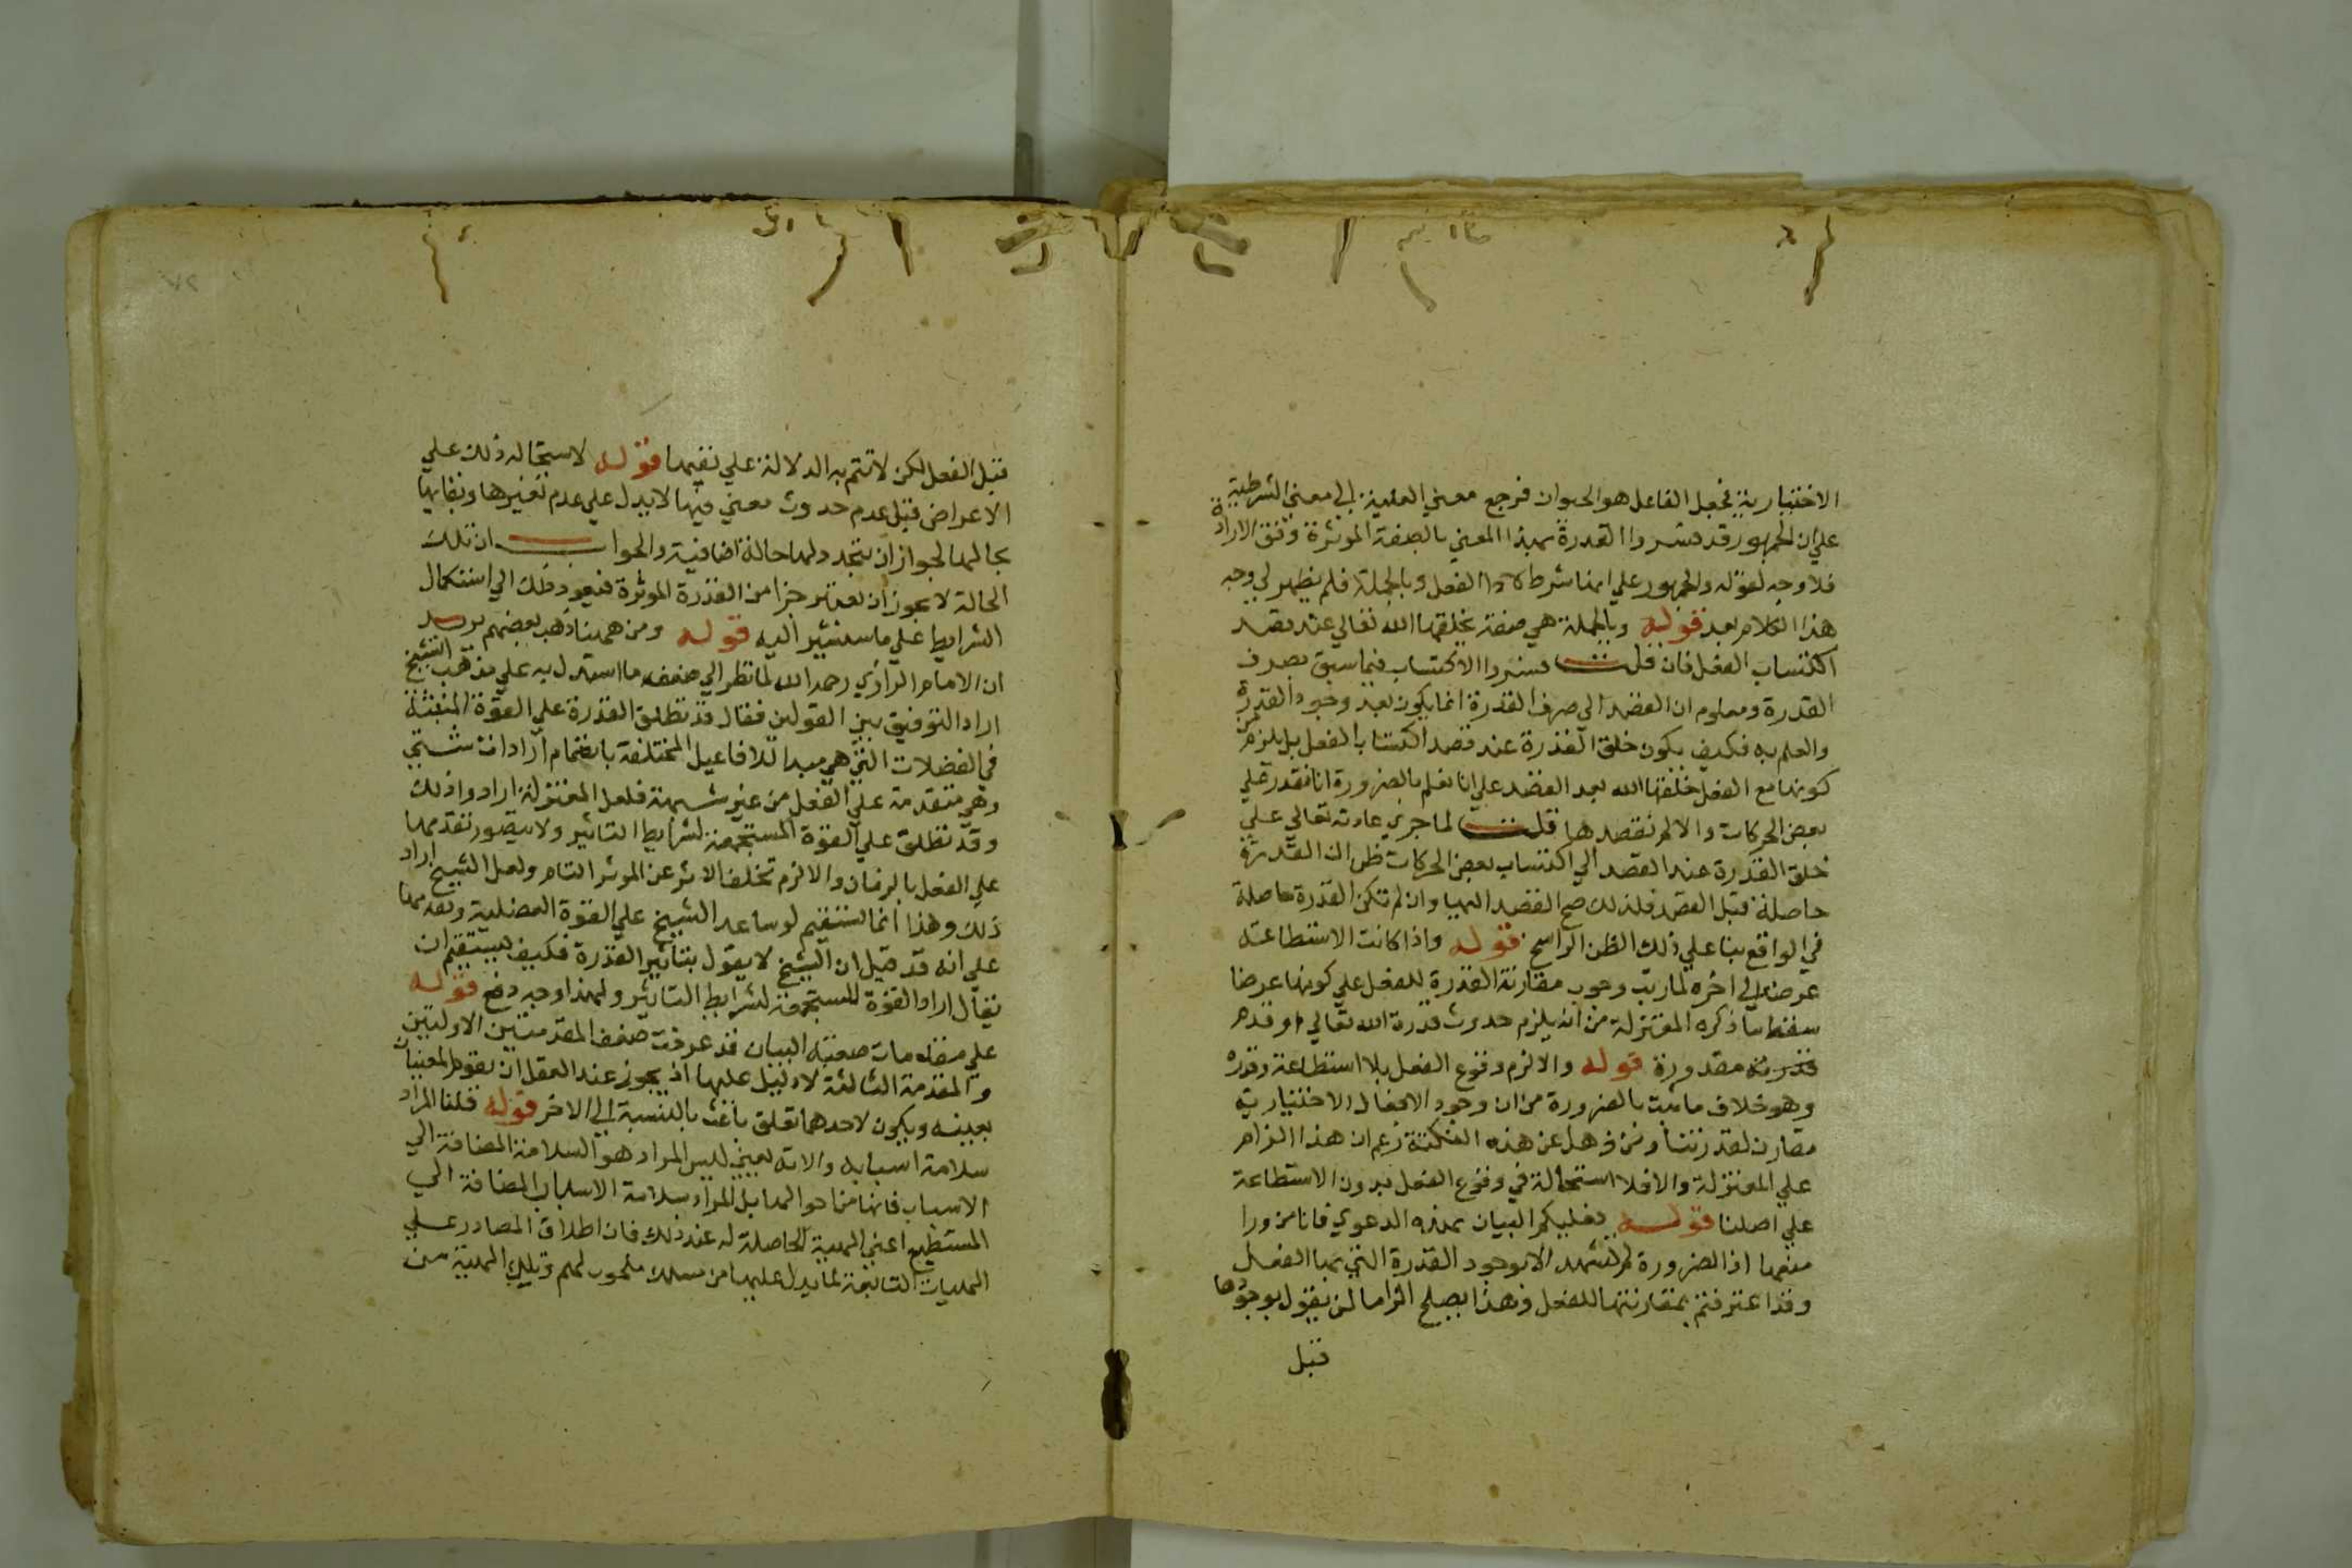 الاختيارية فجعل الفاعل هو الحيوان فرجع معني العلية الي معني الشرطية
علي ان الجمهور قد فسروا القدرة بهذا المعني بالصفة الموثرة وفق الارادة
فلا وجه لقوله والجمهور علي انها شرط لاداء الفعل وبالجملة فلم يظهر لي وجه
هذا الكلام بعد قوله وبالجملة هي صفة يخلقها الله تعالي عند قصد
اكتساب الفعل فان قلت فسروا الاكتساب فيما سبق بصرف
القدرة ومعلوم ان القصد الي صرف القدرة انما يكون بعد وجود القدرة
والعلم به فكيف يكون خلق القدرة عند قصد اكتساب الفعل بل يلزم من
كونها مع الفعل خلقها الله بعد القصد علي انا نعلم بالضرورة انا نقدر علي
بعض الحركات والا لم نقصدها قلت لما جري عادته تعالي علي
خلق القدرة عند القصد الي اكتساب بعض الحركات ظن ان القدرة
حاصلة قبل القصد فلذلك صح القصد اليها وان لم تكن القدرة حاصلة
في الواقع بنا علي ذلك الظن الراسخ قوله واذا كانت الاستطاعة
عرضا الي اخره لما رتب وجوب مقارنة القدرة للفعل علي كونها عرضا
سقط ما ذكره المعتزلة من انه يلزم حدوث قدرة الله تعالي او قدم
مقدورة قوله والا لزم وقوع الفعل بلا استطاعة وقدره
وهو خلاف ما ثبت بالضرورة من ان وجود الافعال الاختيارية
مقارن لقدرتنا ومن ذهل عن هذه النكتة زعم ان هذا الزام
علي المعتزلة والا فلا استحالة في وقوع الفعل بدون الاستطاعة
علي اصلنا قوله فعليكم البيان بهذه الدعوي فانا من ورا
منعها اذ الضرورة لم تشهد الا بوجود القدرة التي بها الفعل
وقد اعترفتم بمقارنتها للفعل وهذا يصلح الزاما لمن يقول بوجودها
قبل
قبل الفعل لكن لا تتم به الدلالة علي نفيها قوله لاستحاله ذلك علي
الاعراض قبل عدم حدوث معني فيها لا يدل علي عدم تغيرها وبقايها
بحالها لجواز ان يتجدد لها حالة اضافية والجواب ان تلك
الحالة لا يجوز ان تعتبر جزا من القدرة الموثرة فيعود ذلك الي استكمال
الشرايط علي ما سنشير اليه قوله ومن ههنا ذهب بعضهم يريد
ان الامام الرازي رحمه الله لما نظر الي ضعف ما استدل به علي مذهب الشيخ
اراد التوفيق بين القولين فقال قد تطلق القدرة علي القوة المنبثة
في العضلات التي هي مبدا للافاعيل المختلفة بانضمام ارادات شتي
وهي متقدمة علي الفعل من غير شبهة فلعل المعتزلة ارادوا ذلك
وقد تطلق علي القوة المستجمعة لشرايط التاثير ولا يتصور تقدمها
علي الفعل بالزمان والا لزم تخلف الاثر عن الموثر التام ولعل الشيخ اراد
ذلك وهذا انما يستقيم لو ساعد الشيخ علي القوة العضلية وتقدمها
علي انه قد قيل ان الشيخ لا يقول بتاثير القدرة فكيف يستقيم ان
يقال اراد القوة المستجمعة لشرايط التاثير ولهذا وجه دفع قوله
علي مقدمات صعبة البيان قد عرفت ضعف المقدمتين الاوليين
والمقدمة الثالثة لا دليل عليها اذ يجوز عند العقل ان يقوم المعنيان
بعينه ويكون لاحدهما تعلق باعث بالنسبة الي الاخر قوله قلنا المراد
سلامة اسبابه والاته يعني ليس المراد هو السلامة المضافة الي
الاسباب فانها من احوالها بل المراد سلامة الاسباب المضافة الي
المستطيع اعني الهيية الحاصلة له عند ذلك فان اطلاق المصادر علي
الهييات التابعة لما يدل عليها من مسلك ملحوب لهم وتلك الهيية من